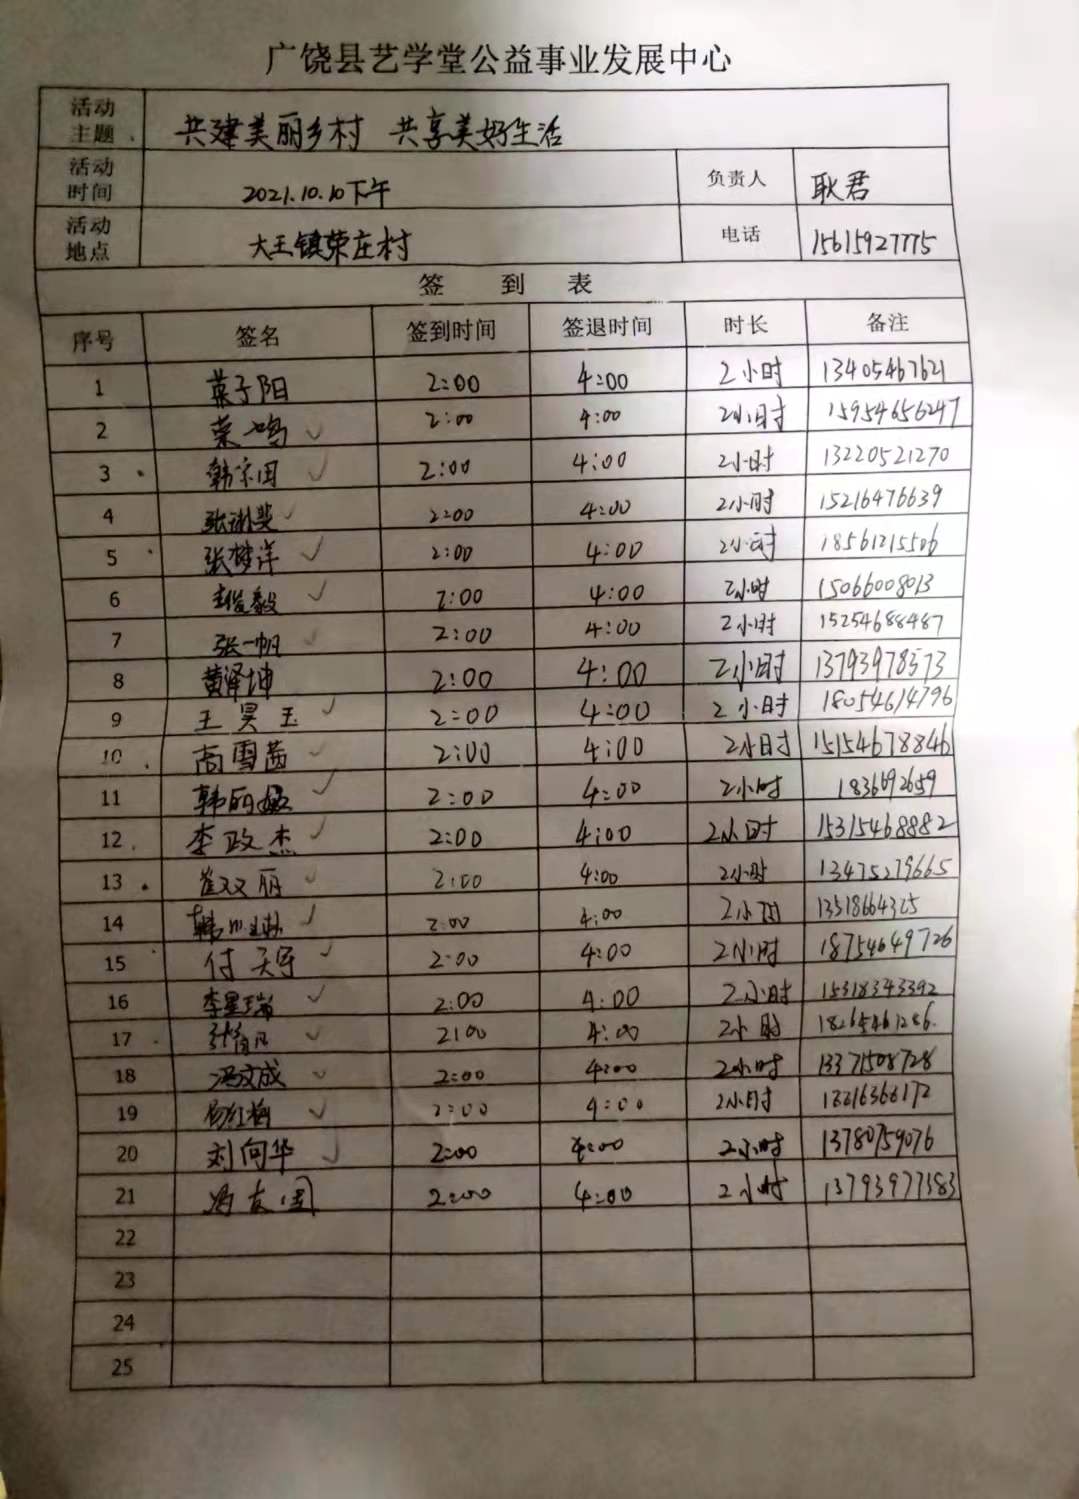 广饶县艺学堂公益事业发展中心
活动主题 共建美丽乡村 共享美好生活
活动时间 2021.10.10下午 负责人 耿君
活动地点 大王镇荣庄村 电话 15615927775
签 到 表
序号 签名 签到时间 签退时间 时长 备注
1 子阳 2:00 4:00 2小时 13405467621
2 荣鸣 2:00 4:00 2小时 15954656247
3 韩宗田 2:00 4:00 2小时 13220521270
4 张淑斐 2:00 4:00 2小时 15216476639
5 张梦洋 2:00 4:00 2小时 18561215506
6 2:00 4:00 2小时 15066008013
7 张一帆 2:00 4:00 2小时 15254688487
8 黄泽坤 2:00 4:00 2小时 13793978573
9 王昊玉 2:00 4:00 2小时 18054614796
10 高雪茜 2:00 4:00 2小时 15154678846
11 韩丽 2:00 4:00 2小时 1836692659
12 李政杰 2:00 4:00 2小时 15315468882
13 崔双丽 2:00 4:00 2小时 13475279665
14 韩 2:00 4:00 2小时
15 付天宇 2:00 4:00 2小时 18754649726
16 李星瑞 2:00 4:00 2小时 15318343392
17 2:00 4:00 2小时 18265461286
18 冯文成 2:00 4:00 2小时 13371508728
19 红梅 2:00 4:00 2小时
20 刘向华 2:00 4:00 2小时 13780759076
21 冯友国 2:00 4:00 2小时 13793977383
22
23
24
25